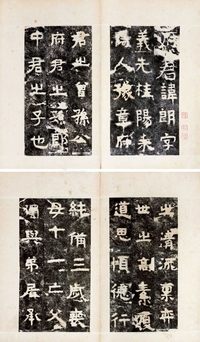 府君諱朗字
義先桂陽耒
陽人豫章府
君之曾孫公
府君之孫郎
中君之子也
之清流稟弈
世之高素
道思惇德行
純備三歲喪
母十一亡父
獨與弟居承